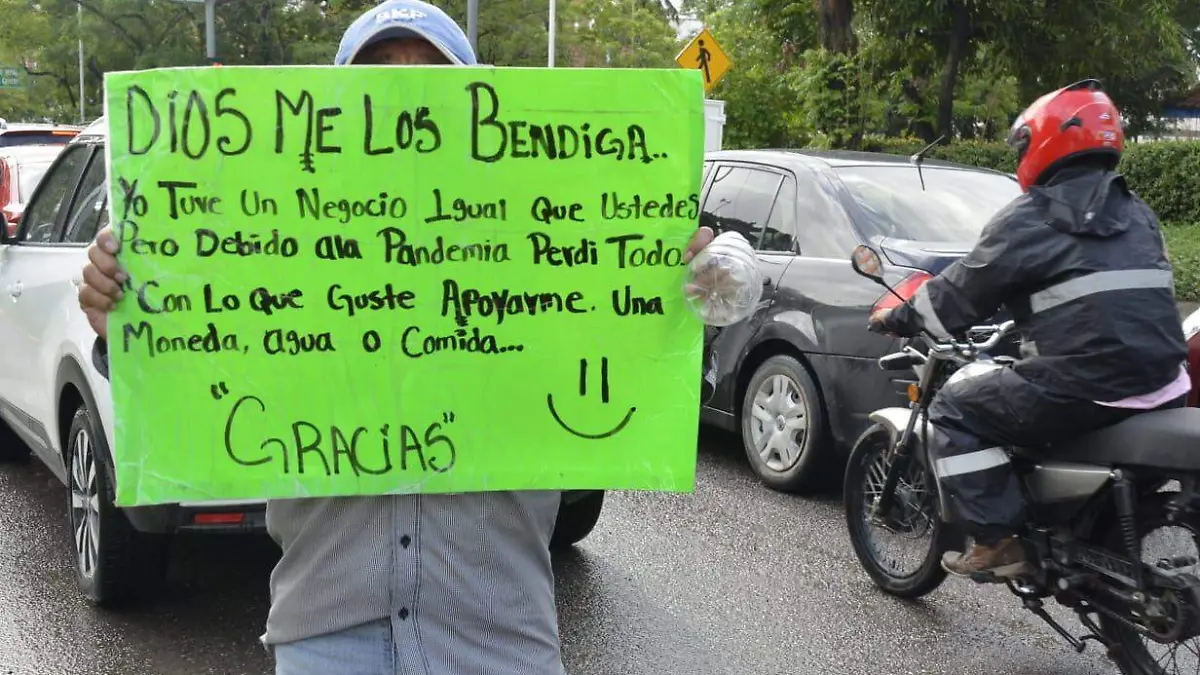 BKF
DIOS ME LOS BENDIGA..
Yo Tuve Un Negocio Igual Que Ustedes
Pero Debido ala Pandemia Perdi Todo.
"Con Lo Que Guste Apoyarme. Una
Moneda, agua o Comida...
"GRACIAS"